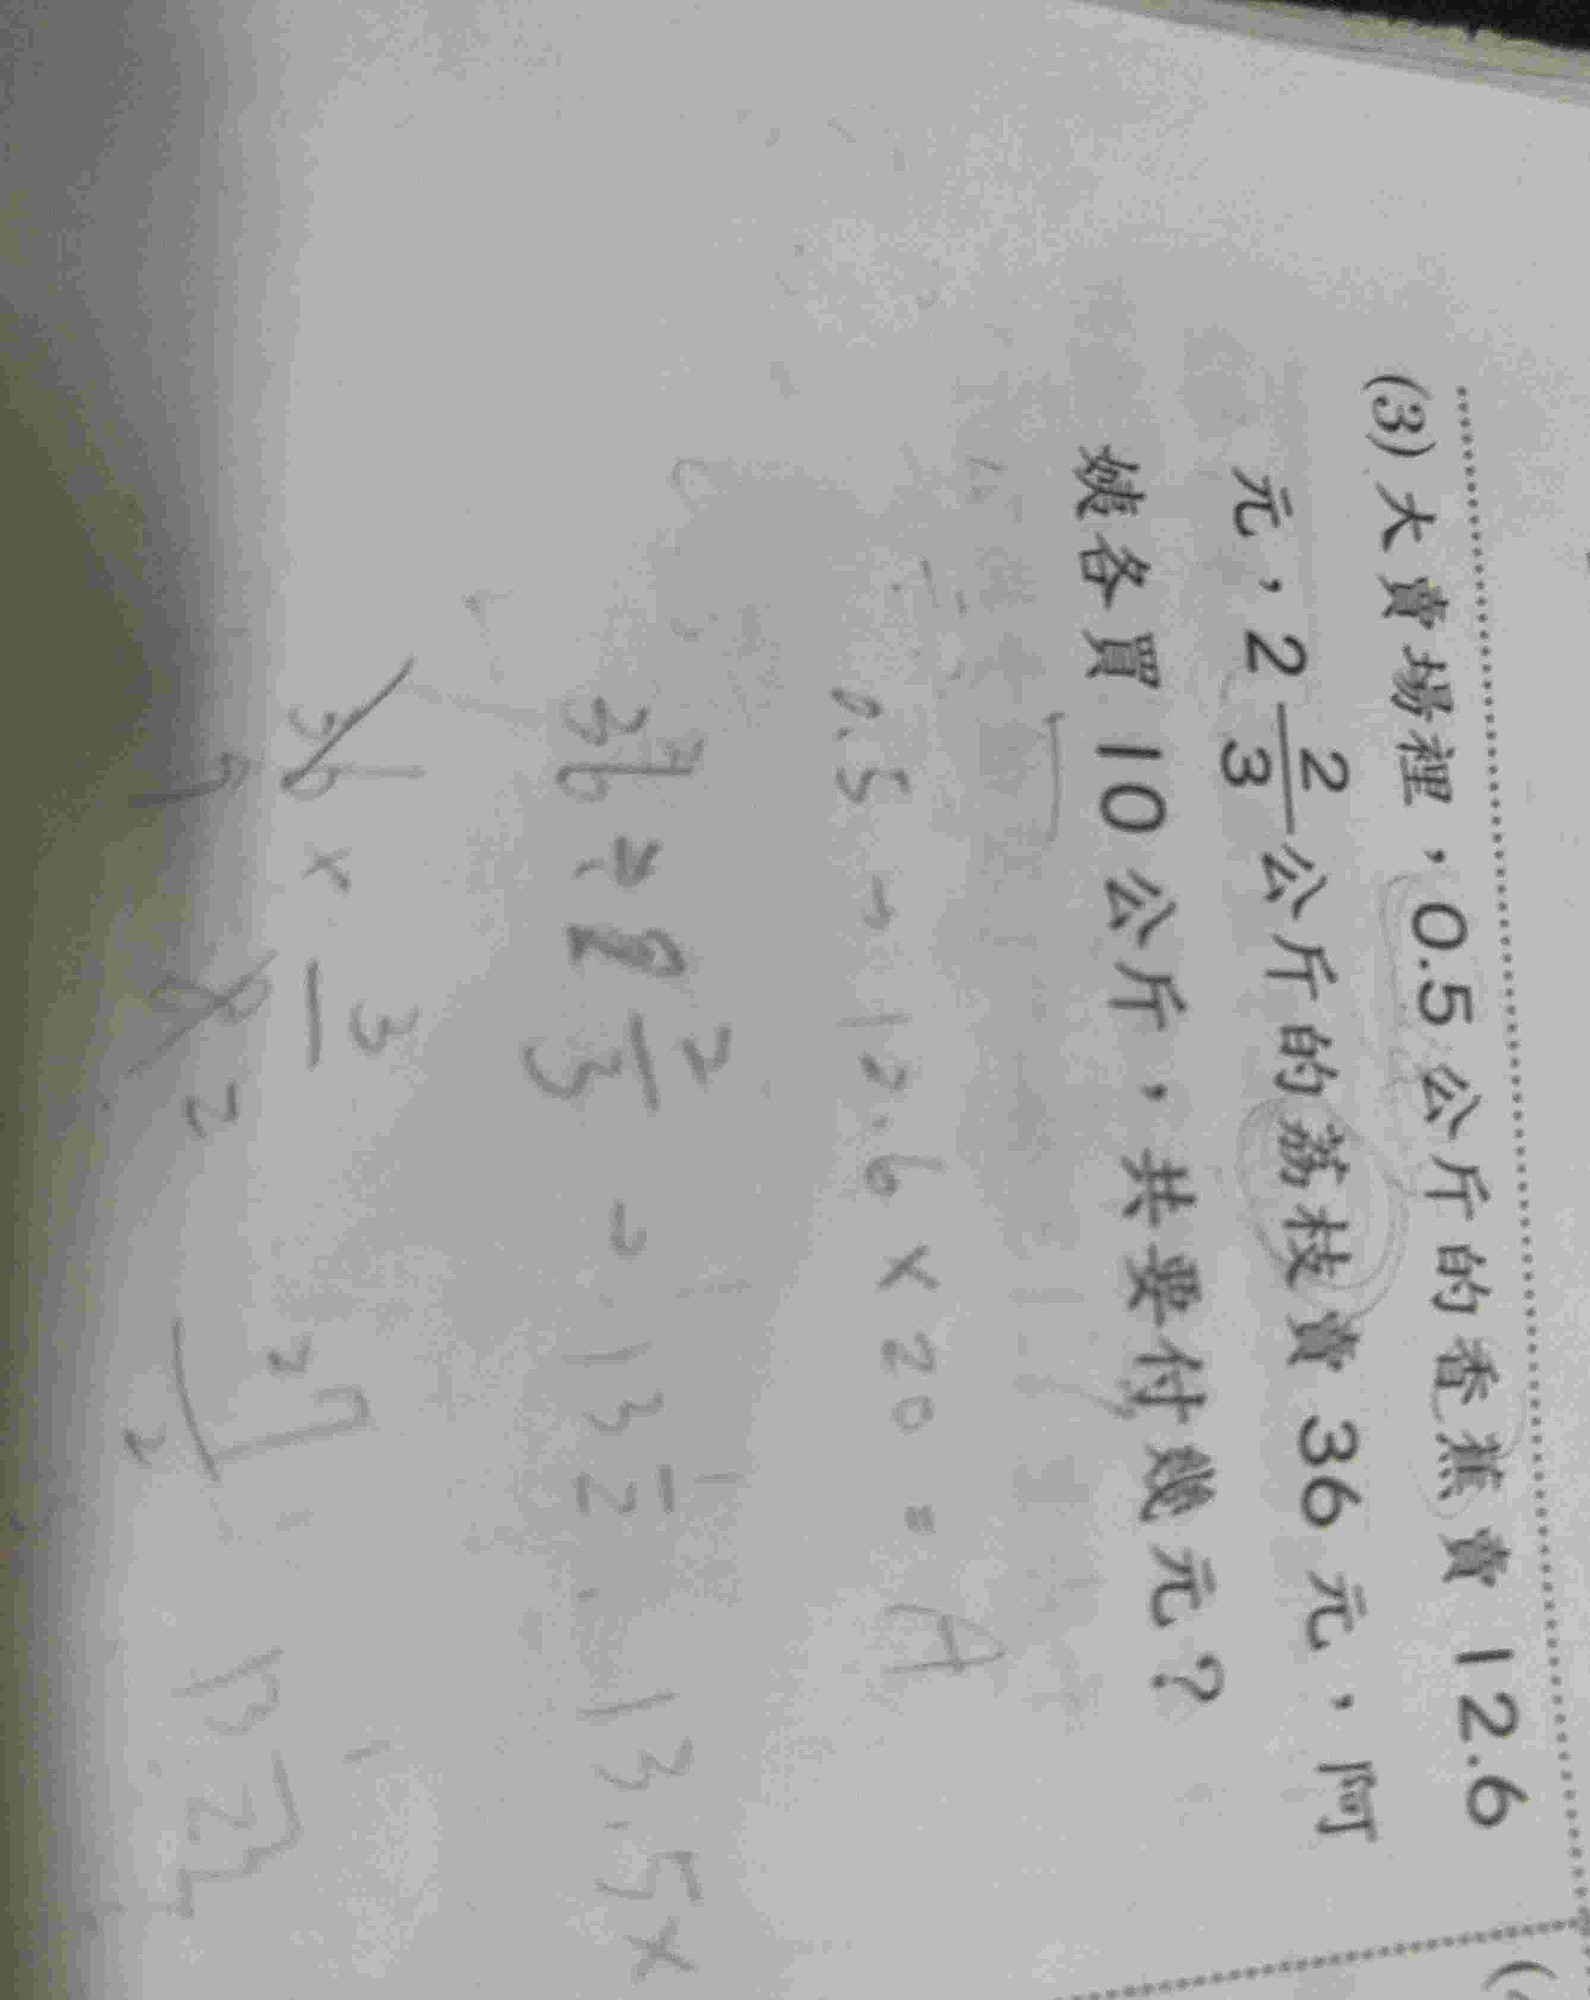 (3) 大賣場裡，0.5公斤的香蕉賣 12.6
元，2 2/3 公斤的荔枝賣 36 元，阿
姨各買 10 公斤，共要付幾元？
0.5 → 12.6 × 20 = A
36 ÷ 2 2/3 → 13 1/2 . 13.5×
36 × 3/8
27/2
13 1/2